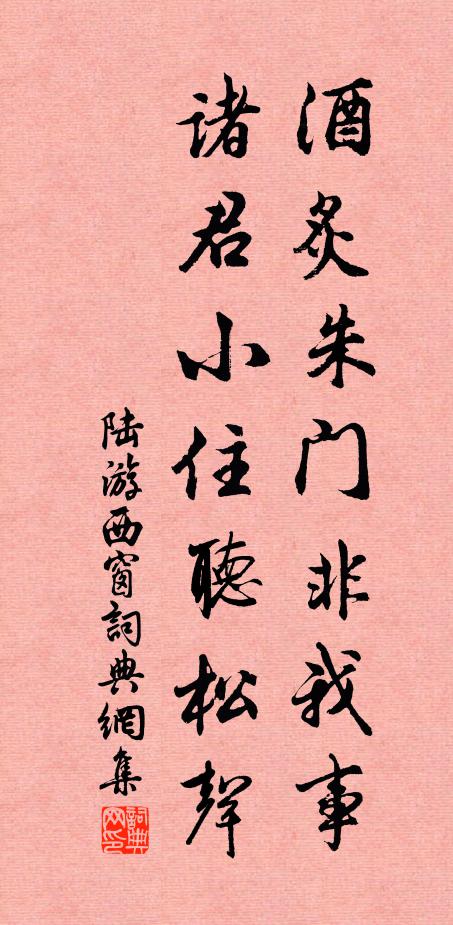 酒炙朱门非我事
诸君小住聽松聲
陆游西窗詞典網集
詞典网印